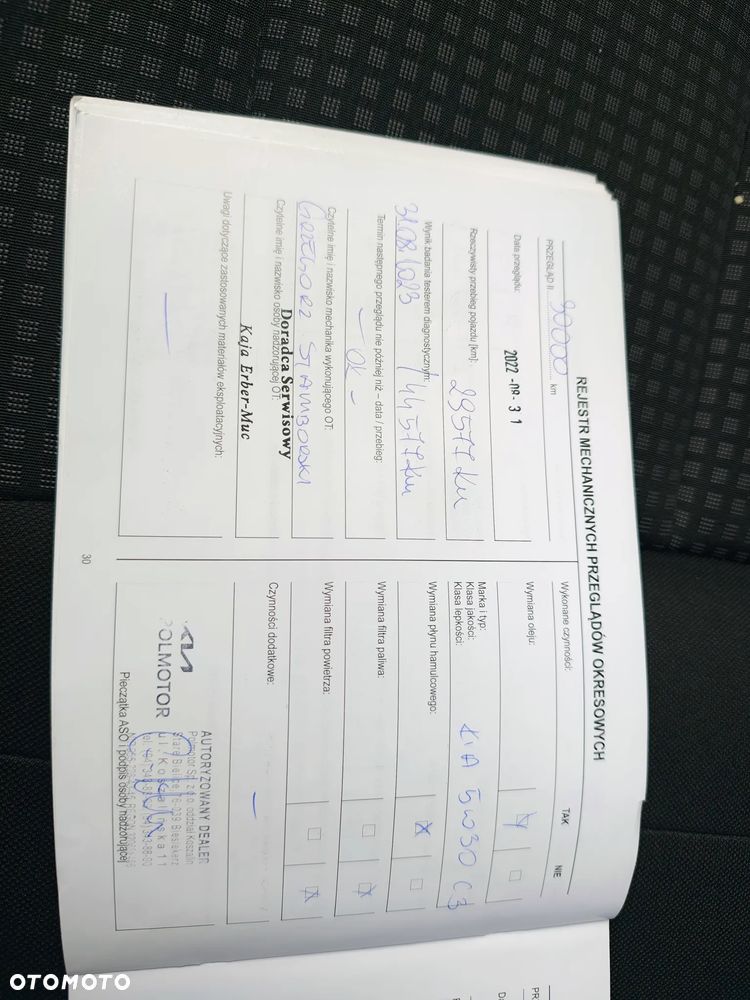 REJESTR MECHANICZNYCH PRZEGLĄDÓW OKRESOWYCH
PRZEGLĄD II. 90000 km
Data przeglądu:
2022 -08- 31
Rzeczywisty przebieg pojazdu [km]:
29577 km
Wynik badania testerem diagnostycznym:
31.08.2023 / 44577 km
Termin następnego przeglądu nie później niż – data / przebieg:
– OK –
Czytelne imię i nazwisko mechanika wykonującego OT:
GRZEGORZ STAMBORSKI
Czytelne imię i nazwisko osoby nadzorującej OT:
Doradca Serwisowy
Kaja Erber-Muc
Uwagi dotyczące zastosowanych materiałów eksploatacyjnych:
—
Wykonane czynności: TAK NIE
Wymiana oleju:
Marka i typ:
Klasa jakości:
Klasa lepkości:
KIA 5W30 C3
Wymiana płynu hamulcowego:
Wymiana filtra paliwa:
Wymiana filtra powietrza:
Czynności dodatkowe:
—
KIA
POLMOTOR
AUTORYZOWANY DEALER
Polmotor Sp. z o.o. oddział Koszalin
Stare Bielice 76-039 Biesiekierz
ul. Koszalińska 11
Pieczątka ASO i podpis osoby nadzorującej
30
OTOMOTO